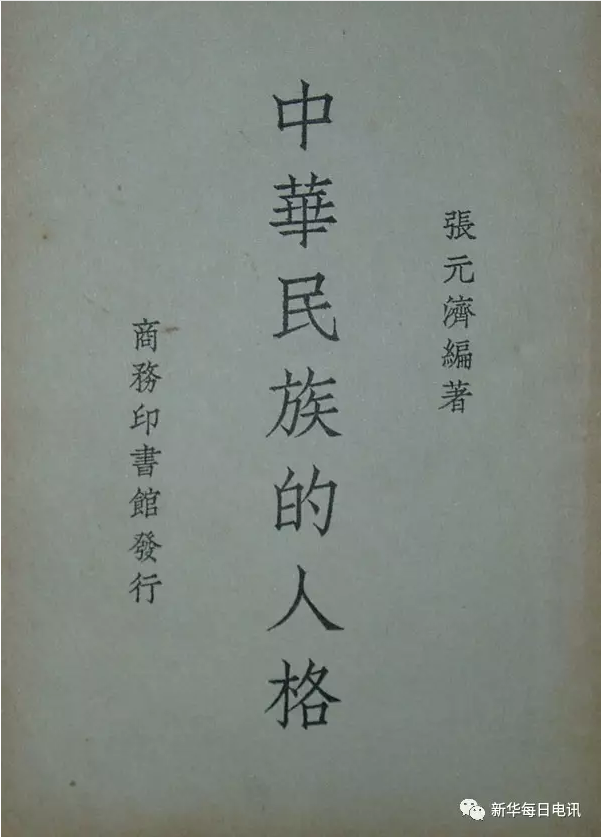 張元濟編著
中華民族的人格
商務印書館發行
新华每日电讯